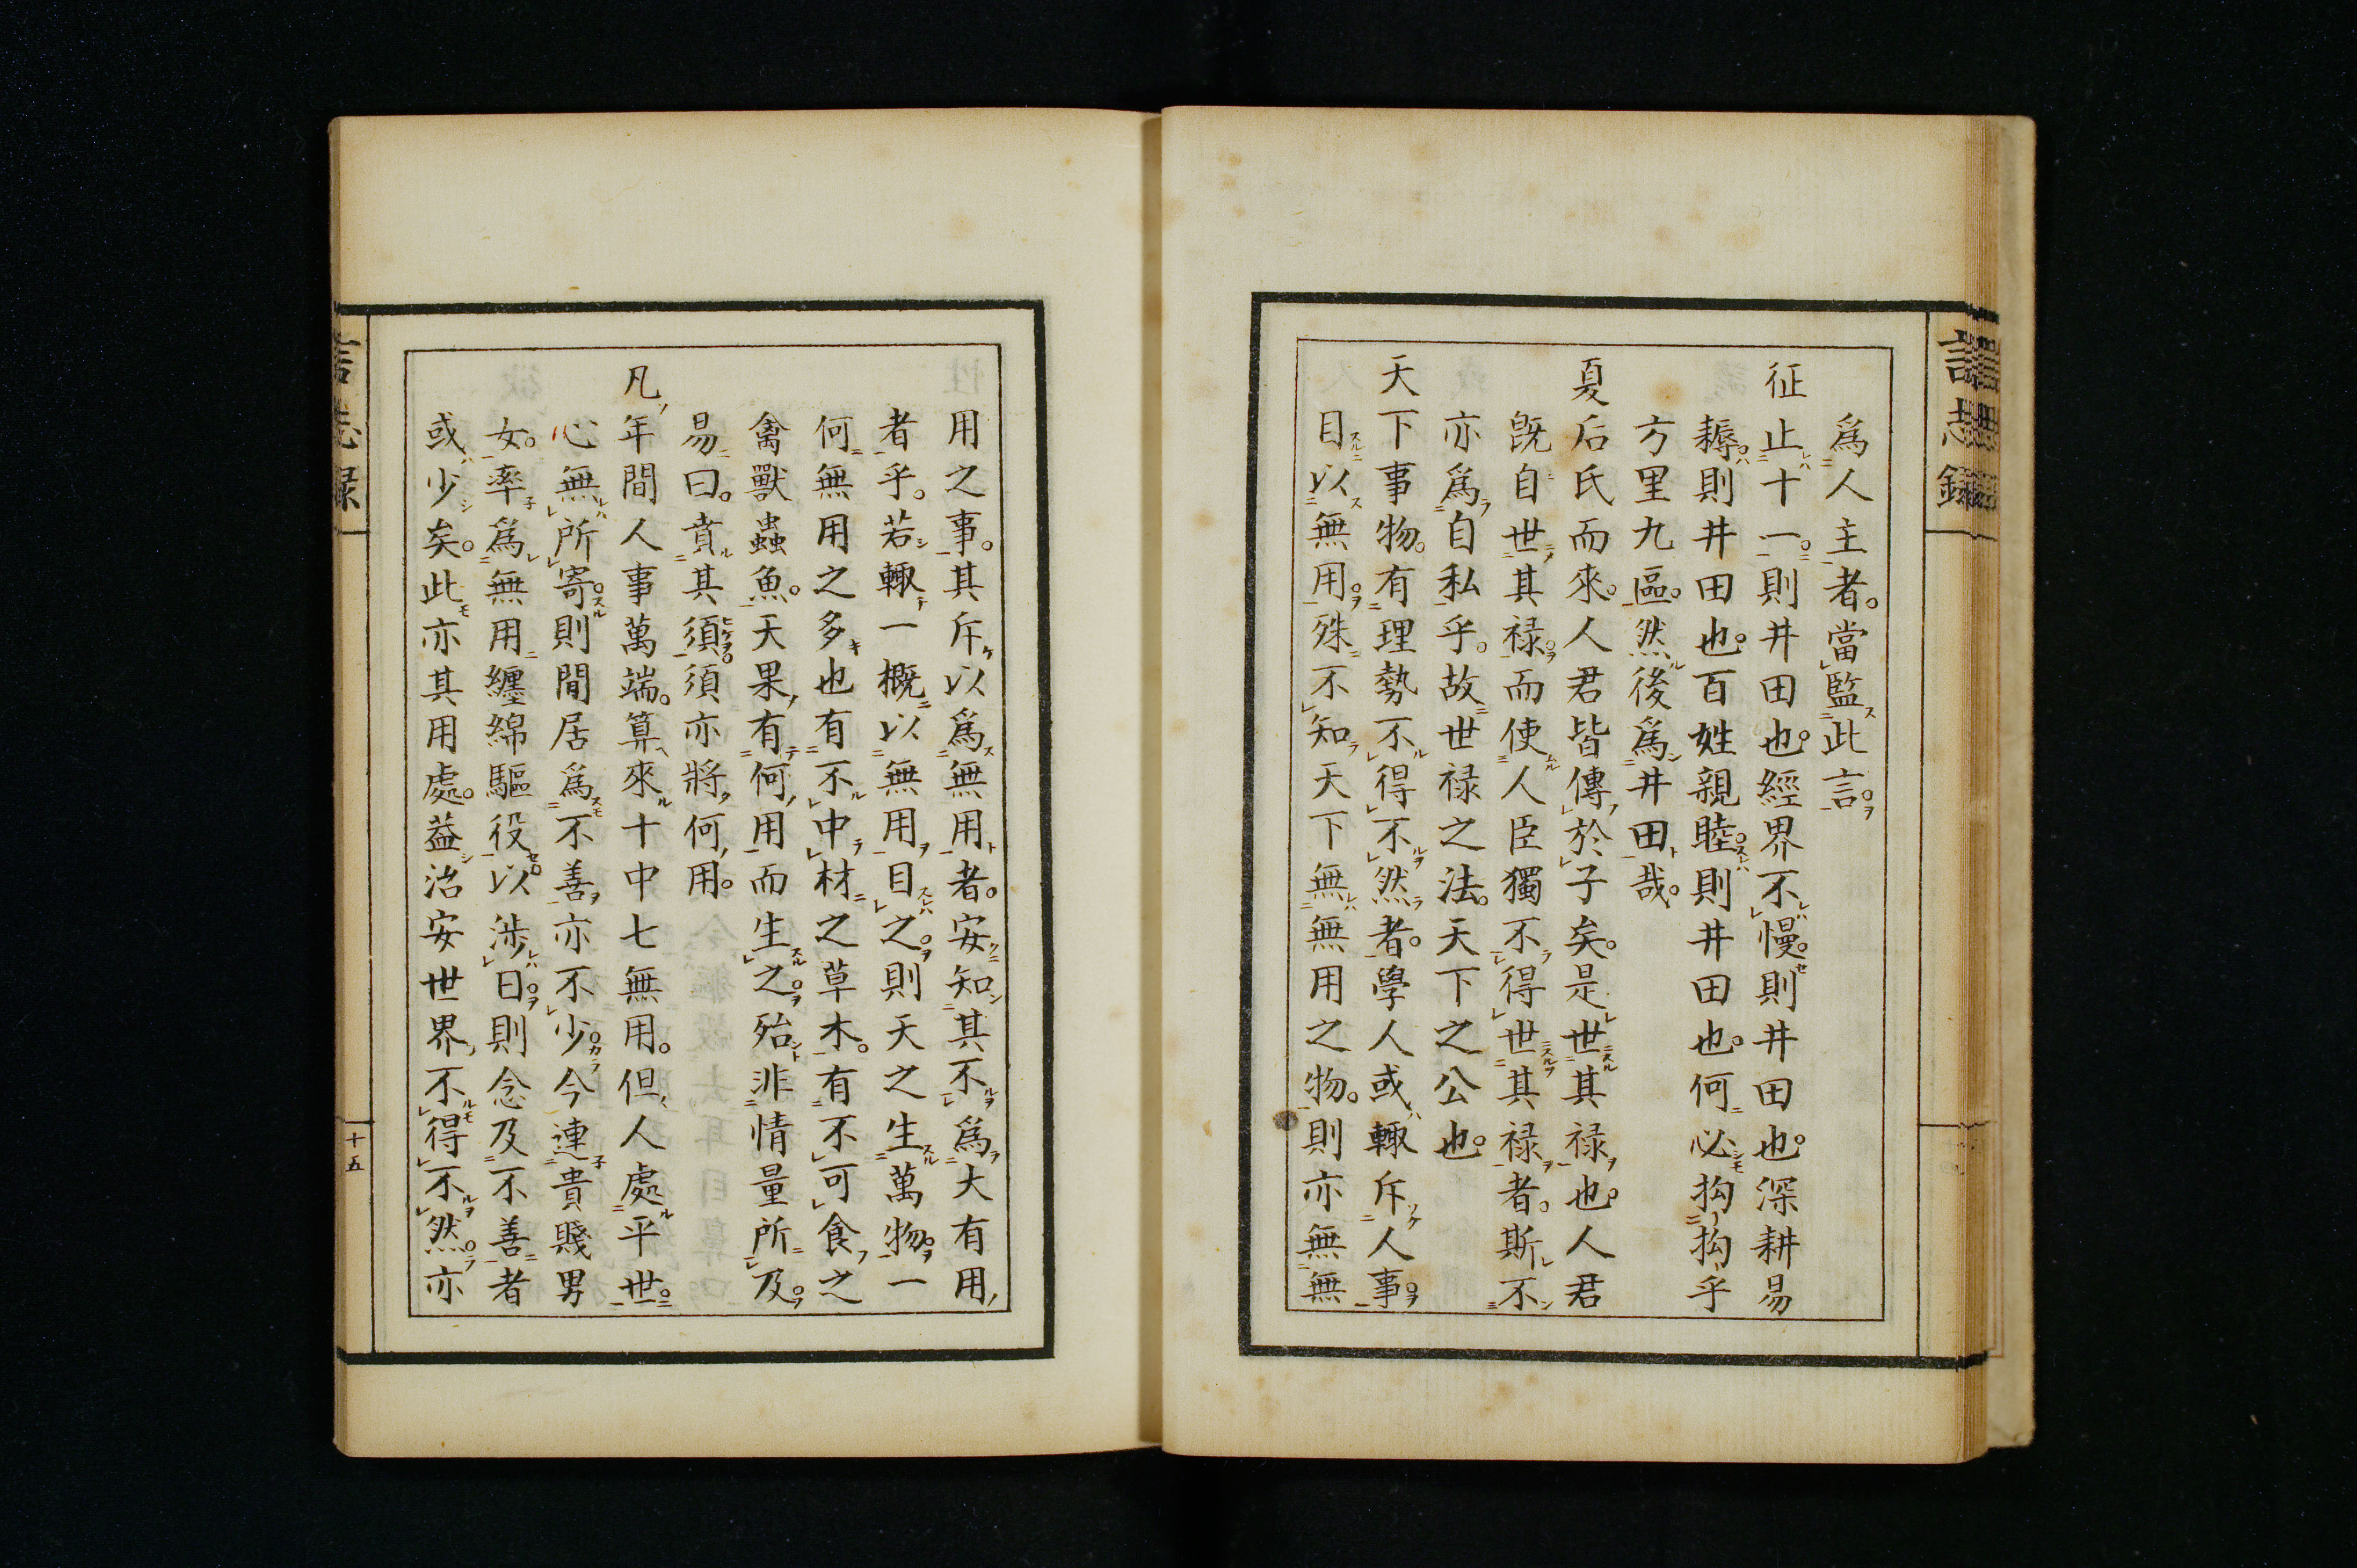 言志錄
爲人主者。當監此言。
征止十一。則井田也。經界不慢。則井田也。深耕易
耨。則井田也。百姓親睦。則井田也。何必拘拘乎
方里九區。然後爲井田哉。
夏后氏而來。人君皆傳於子矣。是世其禄也。人君
既自世其禄。而使人臣獨不得世其禄者。斯不
亦爲自私乎。故世禄之法。天下之公也。
天下事物。有理勢不得不然者。學人或輙斥人事。
目以無用。殊不知天下無無用之物。則亦無無
用之事。其斥以爲無用者。安知其不爲大有用
者乎。若輙一概以無用目之。則天之生萬物。一
何無用之多也。有不中材之草木。有不可食之
禽獸蟲魚。天果有何用而生之。殆非情量所及。
易曰。賁其須。須亦將何用。
凡年間人事萬端。算來十中七無用。但人處平世。
心無所寄。則間居爲不善。亦不少。今連貴賤男
女。率爲無用纏綿驅役。以涉日。則念及不善者
或少矣。此亦其用處。益治安世界。不得不然。亦
言志録
十五